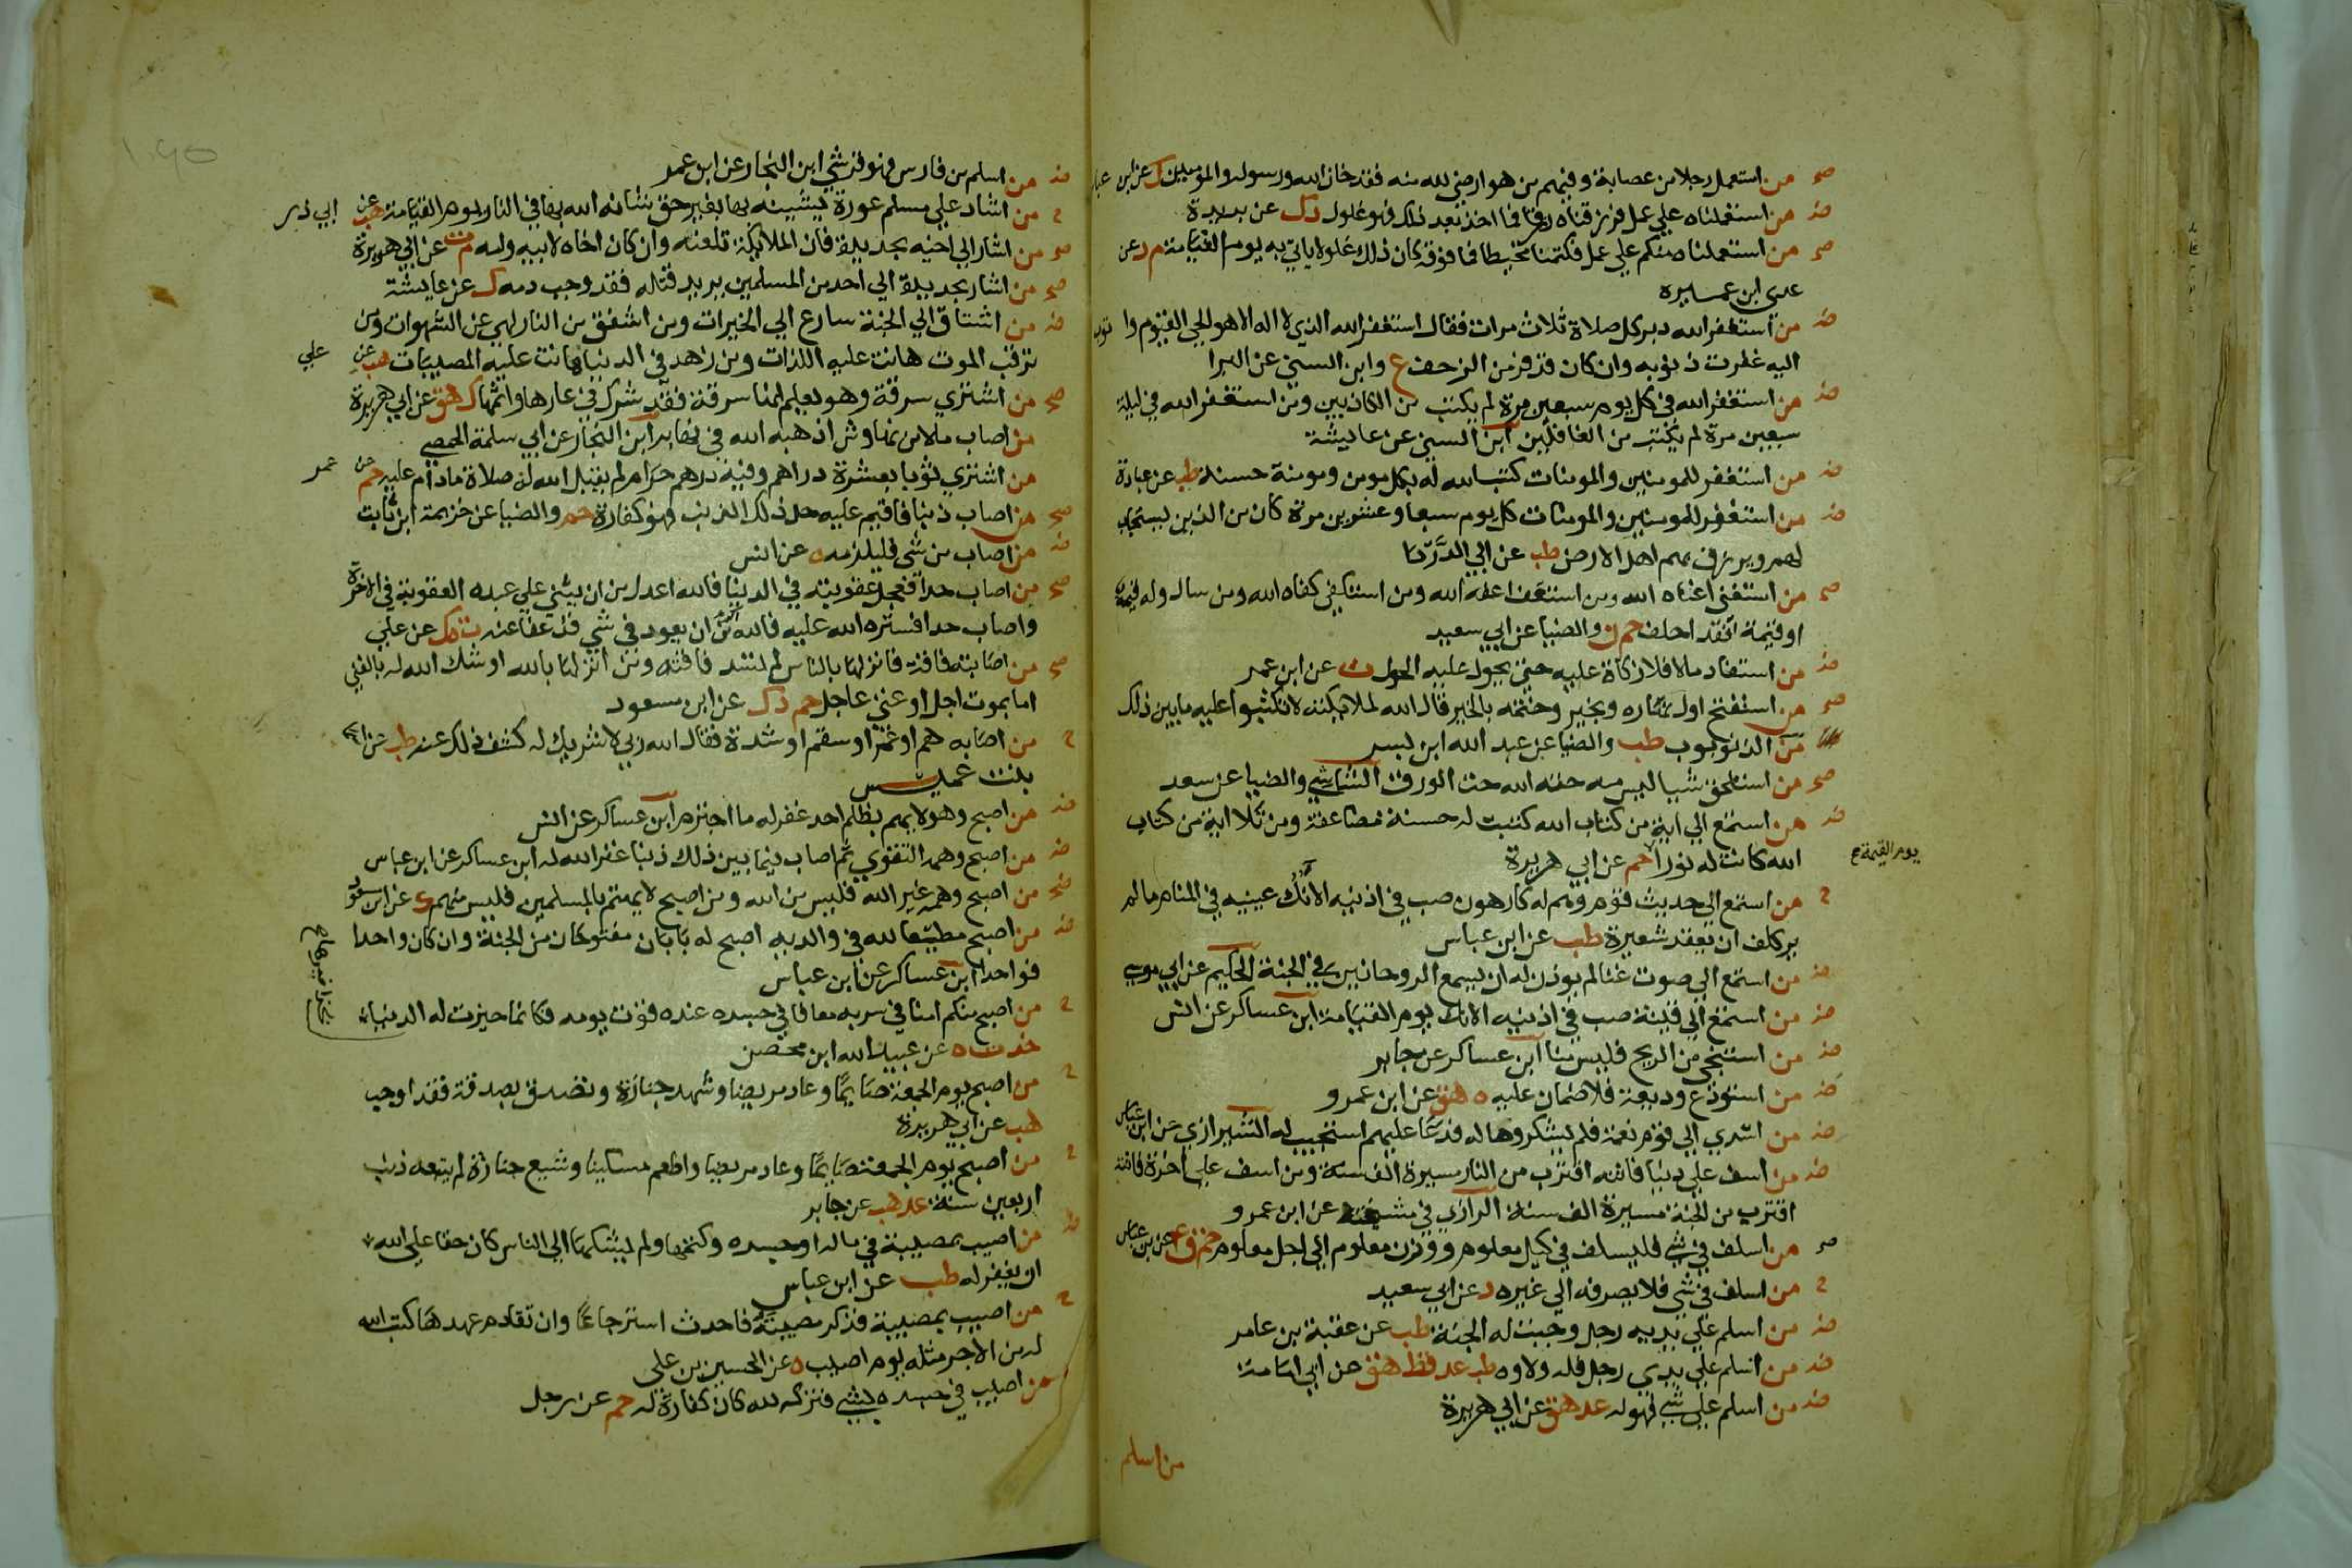 صح من استعمل رجلا من عصابة وفيهم من هو ارضي لله منه فقد خان الله ورسوله والمومنين ك عن ابن عباس
ض من استعملناه علي عمل فرزقناه رزقا فما اخذ بعد ذلك فهو غلول د ك عن بريدة
صح من استعملنا منكم علي عمل فكتمنا مخيطا فما فوقه كان ذلك غلولا ياتي به يوم القيامة م د عن
عدي ابن عميره
ض من استغفر الله دبر كل صلاة ثلاث مرات فقال استغفر الله الذي لا اله الا هو الحي القيوم واتوب
اليه غفرت ذنوبه وان كان قد فر من الزحف ع وابن السني عن البرا
ض من استغفر الله في كل يوم سبعين مرة لم يكتب من الكاذبين ومن استغفر الله في ليلة
سبعين مرة لم يكتب من الغافلين ابن السني عن عايشة
ض من استغفر للمومنين والمومنات كتب الله له بكل مومن ومومنة حسنة طب عن عبادة
ض من استغفر للمومنين والمومنات كل يوم سبعا وعشرين مرة كان من الذين يستجاب
لهم ويرزق بهم اهل الارض طب عن ابي الدردا
صح من استغني اغناه الله ومن استعف اعفه الله ومن استكفي كفاه الله ومن سال وله قيمة
اوقية فقد الحف حم ن والضيا عن ابي سعيد
ض من استفاد مالا فلا زكاة عليه حتي يحول عليه الحول ت عن ابن عمر
صح من استفتح اول نهاره بخير وختمه بالخير قال الله لملايكته لا تكتبوا عليه ما بين ذلك
من الذنوب طب والضيا عن عبد الله ابن بسر
صح من استلحق شيا ليس منه حته الله حت الورق الشاشي والضيا عن سعد
ض من استمع الي اية من كتاب الله كتبت له حسنة مضاعفة ومن تلا اية من كتاب
الله كانت له نورا حم عن ابي هريرة
يوم القيمة صح
ح من استمع الي حديث قوم وهم له كارهون صب في اذنيه الانك ومن اري عينيه في المنام ما لم
ير كلف ان يعقد شعيرة طب عن ابن عباس
ض من استمع الي صوت غنا لم يوذن له ان يسمع الروحانيين في الجنة الحكيم عن ابي موسي
ض من استمع الي قينة صب في اذنيه الانك يوم القيامة ابن عساكر عن انس
ض من استنجي من الريح فليس منا ابن عساكر عن جابر
ض من استودع وديعة فلا ضمان عليه ه هق عن ابن عمرو
ض من اسدي الي قوم نعمة فلم يشكروها له فدعا عليهم استجيب له الشيرازي عن ابن عباس
ض من اسف علي دنيا فاتته اقترب من النار مسيرة الف سنة ومن اسف علي اخرة فاتته
اقترب من الجنة مسيرة الف سنة الرازي في مشيخته عن ابن عمرو
صح من اسلف في شي فليسلف في كيل معلوم ووزن معلوم الي اجل معلوم حم ق ع عن ابن عباس
ح من اسلف في شي فلا يصرفه الي غيره د عن ابي سعيد
ض من اسلم علي يديه رجل وجبت له الجنة طب عن عقبة بن عامر
ض من اسلم علي يدي رجل فله ولاوه طب عد قط هق عن ابي امامة
ض من اسلم علي شي فهو له عد هق عن ابي هريرة
من اسلم
ض من اسلم من فارس فهو قرشي ابن النجار عن ابن عمر
ح من اشاد علي مسلم عورة يشينه بها بغير حق شانه الله بها في النار يوم القيامة هب عن ابي ذر
صح من اشار الي اخيه بحديدة فان الملايكة تلعنه وان كان اخاه لابيه وامه م ت عن ابي هريرة
صح من اشار بحديدة الي احد من المسلمين يريد قتله فقد وجب دمه ك عن عايشة
ض من اشتاق الي الجنة سارع الي الخيرات ومن اشفق من النار لهي عن الشهوات ومن
ترقب الموت هانت عليه اللذات ومن زهد في الدنيا هانت عليه المصيبات هب عن علي
صح من اشتري سرقة وهو يعلم انها سرقة فقد شرك في عارها واثمها ك هق عن ابي هريرة
من اصاب مالا من نهاوش اذهبه الله في نهابر ابن النجار عن ابي سلمة الحمصي
من اشتري ثوبا بعشرة دراهم وفيه درهم حرام لم يقبل الله له صلاة ما دام عليه حم عن عمر
صح من اصاب ذنبا فاقيم عليه حد ذلك الذنب فهو كفارة حم والضيا عن خزيمة ابن ثابت
ض من اصاب من شي فليلزمه ه عن انس
صح من اصاب حدا فعجل عقوبته في الدنيا فالله اعدل من ان يثني علي عبده العقوبة في الاخرة
واصاب حدا فستره الله عليه فالله اكرم من ان يعود في شي قد عفا عنه ت ه ك عن علي
صح من اصابته فاقة فانزلها بالناس لم تسد فاقته ومن انزلها بالله اوشك الله له بالغني
اما بموت اجل او غني عاجل حم د ك عن ابن مسعود
ح من اصابه هم او غم او سقم او شدة فقال الله ربي لا شريك له كشف ذلك عنه طب عن اسما
بنت عميس
ض من اصبح وهو لا يهم بظلم احد غفر له ما اجترم ابن عساكر عن انس
ض من اصبح وهمه التقوي ثم اصاب فيما بين ذلك ذنبا غفر الله له ابن عساكر عن ابن عباس
ض من اصبح وهمه غير الله فليس من الله ومن اصبح لا يهتم بالمسلمين فليس منهم ك عن ابن مسعود
ض من اصبح مطيعا لله في والديه اصبح له بابان مفتوحان من الجنة وان كان واحدا
فواحدا ابن عساكر عن ابن عباس
ح من اصبح منكم امنا في سربه معافا في جسده عنده قوت يومه فكانما حيزت له الدنيا
بحذافيرها صح
خد ت ه عن عبيد الله ابن محصن
ح من اصبح يوم الجمعة صايما وعاد مريضا وشهد جنازة وتصدق بصدقة فقد اوجب
هب عن ابي هريرة
ح من اصبح يوم الجمعة صايما وعاد مريضا واطعم مسكينا وشيع جنازة لم يتبعه ذنب
اربعين سنة عد هب عن جابر
ض من اصيب بمصيبة في ماله او جسده وكتمها ولم يشكها الي الناس كان حقا علي الله
ان يغفر له طب عن ابن عباس
ح من اصيب بمصيبة فذكر مصيبته فاحدث استرجاعا وان تقادم عهدها كتب الله
له من الاجر مثله يوم اصيب ه عن الحسين بن علي
من اصيب في جسده بشي فتركه لله كان كفارة له حم عن رجل